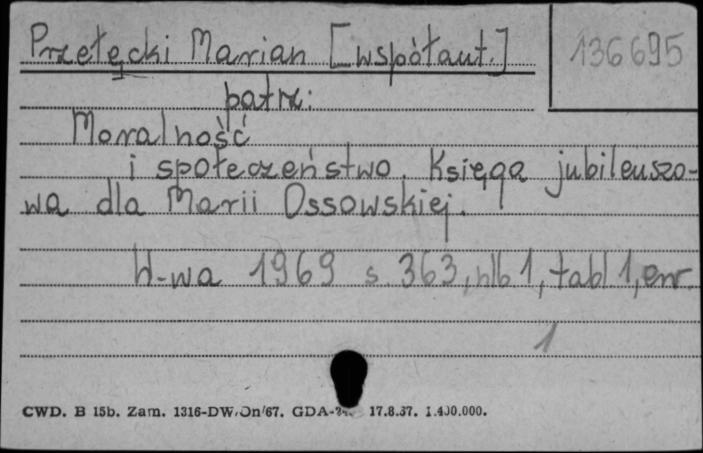 Przełęcki Marian [współaut.]
136695
patrz:
Moralność
i społeczeństwo. Księga jubileuszo-
wa dla Marii Ossowskiej.
W-wa 1969 s. 363, nlb 1, tabl 1, err.
1
CWD. B 15b. Zam. 1316-DW/Dn/67. GDA- 17.8.67. 1.400.000.